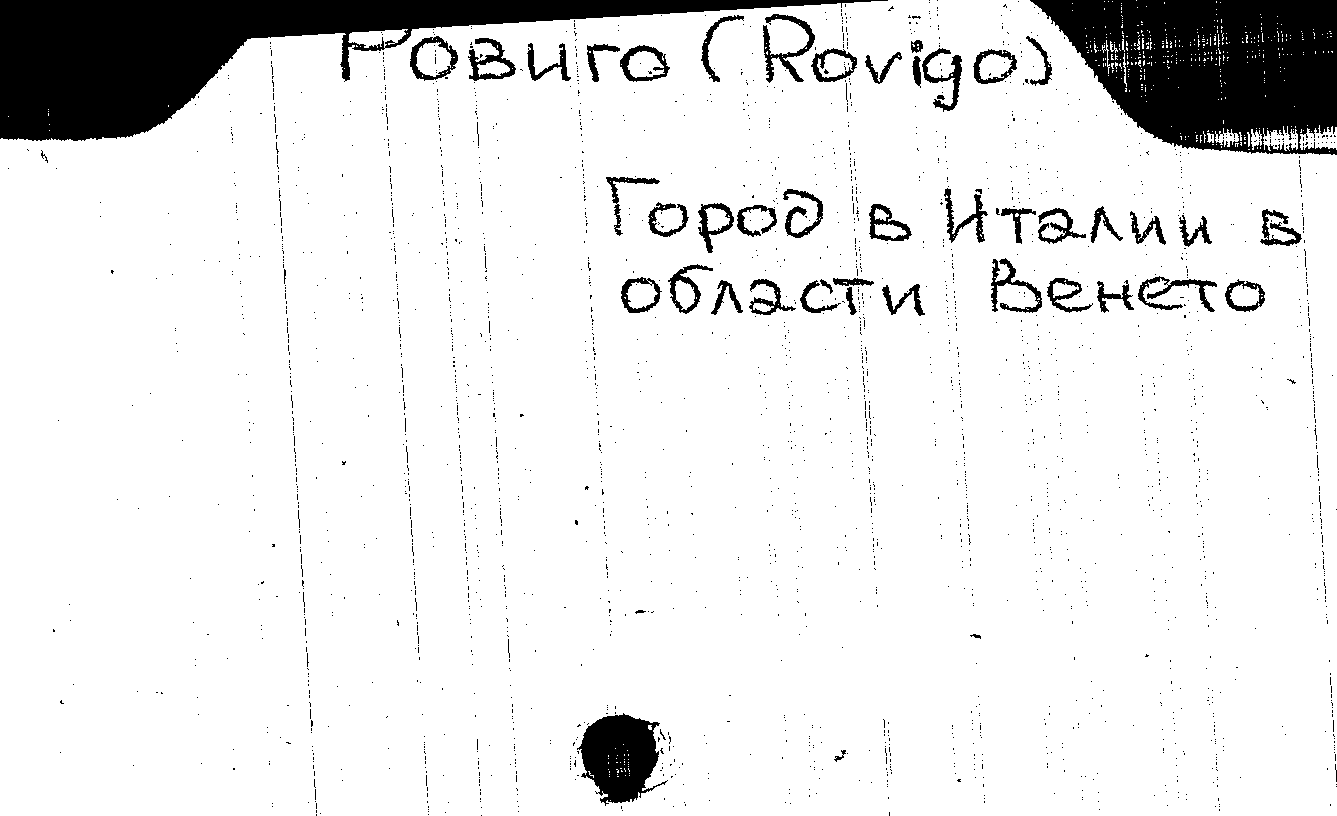 Ровиго (Rovigo)
Город в Италии в
области Венето